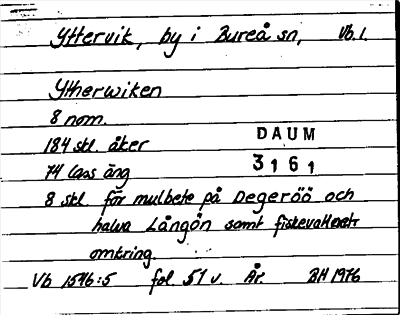 Yttervik, by i Bureå sn, Vb. l.
Ytherwiken
8 nom.
184 skl. åker
DAUM
74 lass äng
3161
8 skl. för mulbete på Degeröö och
halva Långön samt fiskevattnet
omkring.
Vb 1546:5 fol. 51 v. År. BH 1976